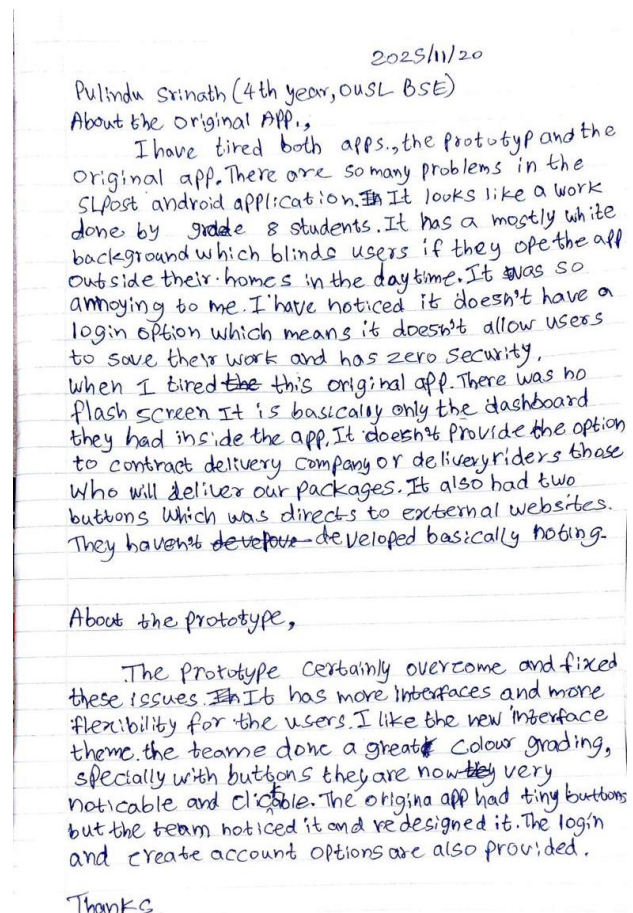 2025/11/20
Pulindu Srinath (4th year, OUSL BSE)
About the Original App.,
I have tired both apps., the prototyp and the
Original app. There are so many problems in the
SLPost android application. It looks like a work
done by grade 8 students. It has a mostly white
background which blinds users if they ope the app
outside their homes in the daytime. It was so
annoying to me. I have noticed it doesn't have a
login option which means it doesn't allow users
to save their work and has zero security.
When I tired the this original app. There was no
flash screen It is basicaly only the dashboard
they had inside the app. It doesn't Provide the option
to contract delivery company or delivery riders those
who will deliver our packages. It also had two
buttons which was directs to external websites.
They haven't developed basically noting.
About the prototype,
The Prototype certainly overcome and fixed
these issues. It has more interfaces and more
flexibility for the users. I like the new interface
theme. the teame done a great colour grading,
specially with buttons they are now very
noticable and clictable. The origina app had tiny buttons
but the team noticed it and redesigned it. The login
and create account options are also provided.
Thanks